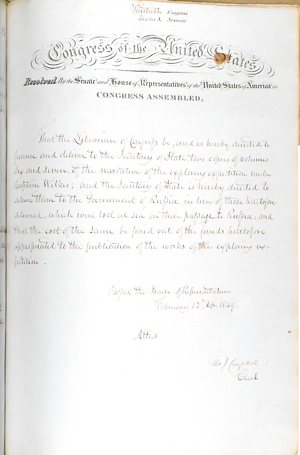 Thirtieth Congress
Second Session
Congress of the United States,
Resolved By the Senate and House of Representatives of the United States of America in
CONGRESS ASSEMBLED,
That the Librarian of Congress be, and is hereby directed to
procure and deliver to the Secretary of State two copies of volumes
and seven, of the narrative of the exploring expedition under
Captain Wilkes; and the Secretary of State is hereby directed to
them to the Government of Russia in lieu of those heretofore
which were lost at sea on their passage to Russia; and
that the cost of the same be paid out of the funds heretofore
appropriated to the publication of the works of the exploring ex-
pedition.
Passed the House of Representatives
13th AD. 1849.
Attest
Tho. J. Campbell
Clerk